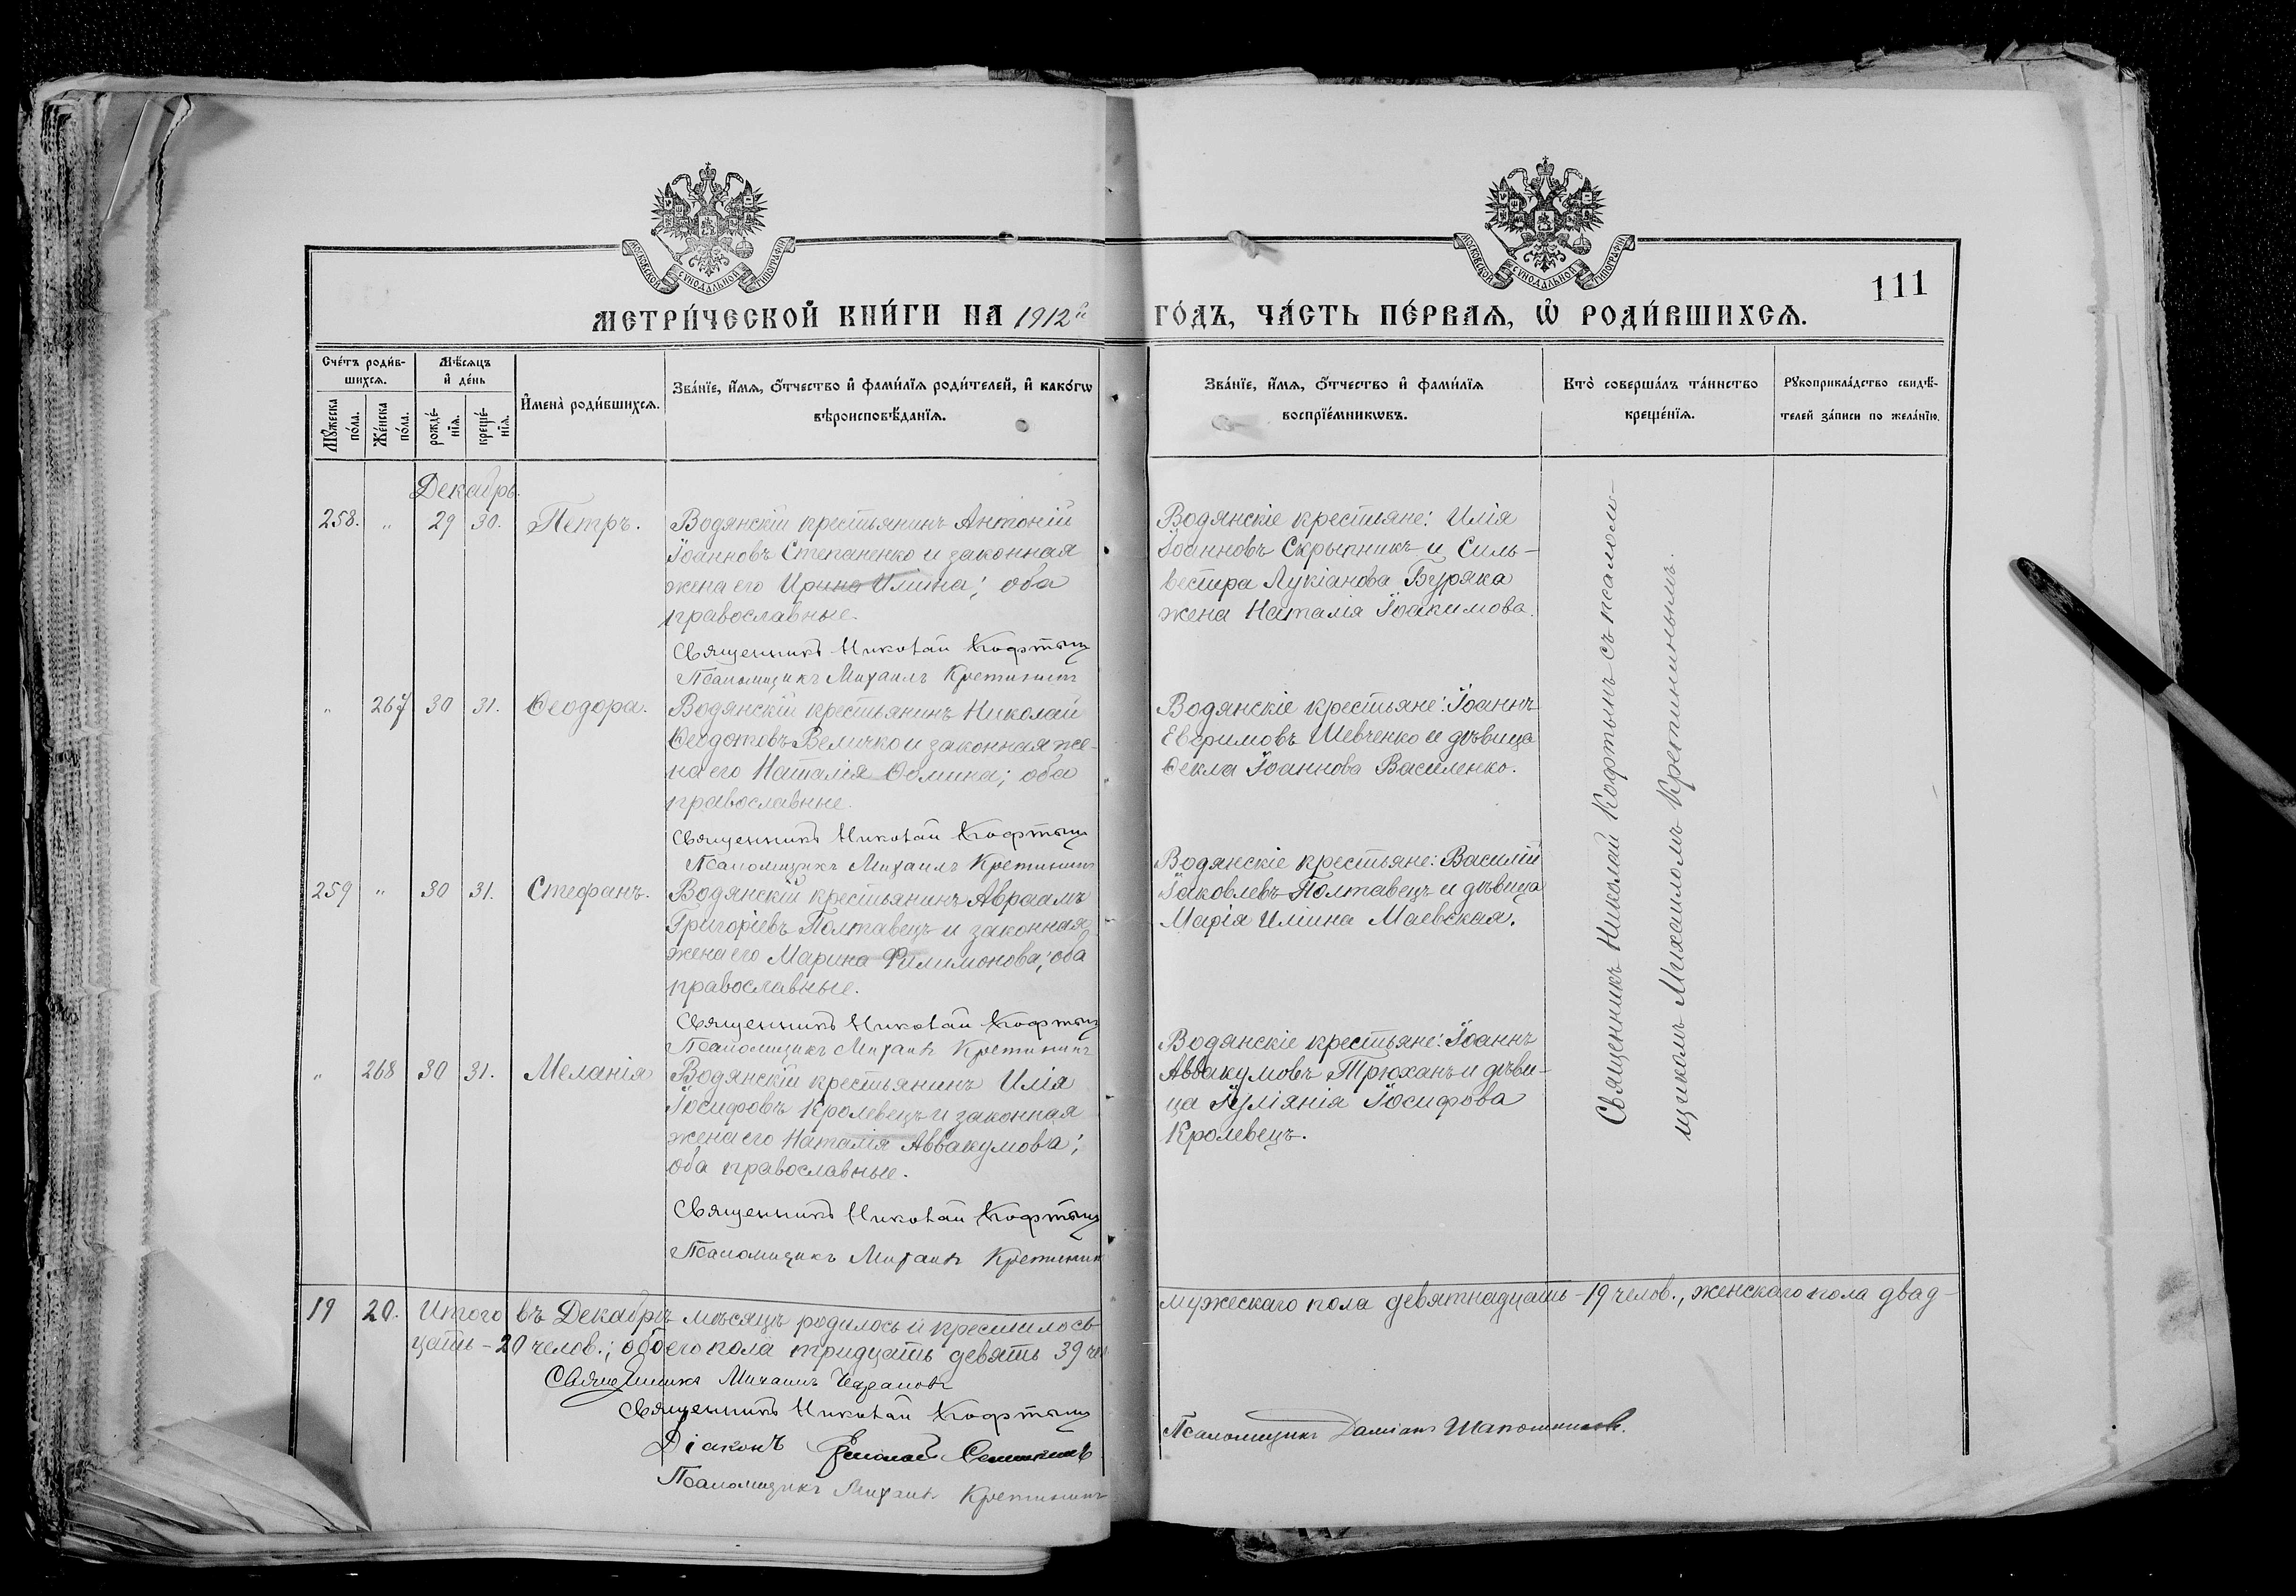 МОСКОВСКОЙ СѴНОДАЛЬНОЙ ТИПОГРАФІИ
МОСКОВСКОЙ СѴНОДАЛЬНОЙ ТИПОГРАФІИ
111
МЕТРИ́ЧЕСКОЙ КНИ́ГИ НА 1912й ГО́ДЪ, ЧА́СТЬ ПЕ́РВАѦ, Ѡ҆ РОДИ́ВШИХСѦ.
Сче́тъ роди́в-
шихсѧ.
Мꙋ́жеска по́ла.
Же́нска по́ла.
Мѣ́сѧцъ
и҆ де́нь
рожде́-
нїѧ.
креще́-
нїѧ.
И҆мена̀ роди́вшихсѧ.
Зва́нїе, и҆́мѧ, ѻ҆́тчество и҆ фами́лїѧ роди́телей, и҆ како́гѡ
вѣроисповѣ́данїѧ.
Зва́нїе, и҆́мѧ, ѻ҆́тчество и҆ фами́лїѧ
воспрїе́мникѡвъ.
Кто̀ соверша́лъ та́инство
креще́нїѧ.
Рꙋкоприкла́дство свидѣ́-
телей за́писи по жела́нїю.
Декабрь.
258. „ 29 30. Петръ.
Водянскій крестьянинъ Антоній
Іоанновъ Степаненко и законная
жена его Ирина Илiина; оба
православные.
Священникъ Николай Кофтынъ
Псаломщикъ Михаилъ Кретининъ
Водянскіе крестьяне: Илія
Іоанновъ Скрыпникъ и Силь-
вестра Лукіанова Буряка
жена Наталія Іоакимова.
„ 267 30 31. Ѳеодора.
Водянскій крестьянинъ Николай
Ѳеодотовъ Величко и законная же-
на его Наталія Ѳомина; оба
православные.
Священникъ Николай Кофтынъ
Псаломщикъ Михаилъ Кретининъ
Водянскіе крестьяне: Іоаннъ
Евѳимовъ Шевченко и дѣвица
Ѳекла Іоаннова Василенко.
259 „ 30 31. Стефанъ.
Водянскій крестьянинъ Авраамъ
Григоріевъ Полтавецъ и законная
жена его Марина Филимонова; оба
православные.
Священникъ Николай Кофтынъ
Псаломщикъ Михаилъ Кретининъ
Водянскіе крестьяне: Василій
Іаковлевъ Полтавецъ и дѣвица
Марія Иліина Маевская.
„ 268 30 31. Меланія
Водянскій крестьянинъ Илія
Іосифовъ Кролевецъ и законная
жена его Наталія Аввакумова;
оба православные.
Священникъ Николай Кофтынъ
Псаломщикъ Михаилъ Кретининъ
Водянскіе крестьяне: Іоаннъ
Аввакумовъ Трюханъ и дѣви-
ца Іуліанія Іосифова
Кролевецъ.
Священникъ Николай Кофтынъ съ псалом-
щикомъ Михаиломъ Кретининымъ.
19 20. Итого въ Декабрѣ мѣсяцѣ родилось и крестилось мужескаго пола девятнадцать - 19 челов., женскаго пола двад-
цать - 20 челов.; обоего пола тридцать девять 39 чел
Священникъ Михаилъ
Священникъ Николай Кофтынъ
Діаконъ
Псаломщикъ Михаилъ Кретининъ
Псаломщикъ Даміанъ Шапошниковъ.